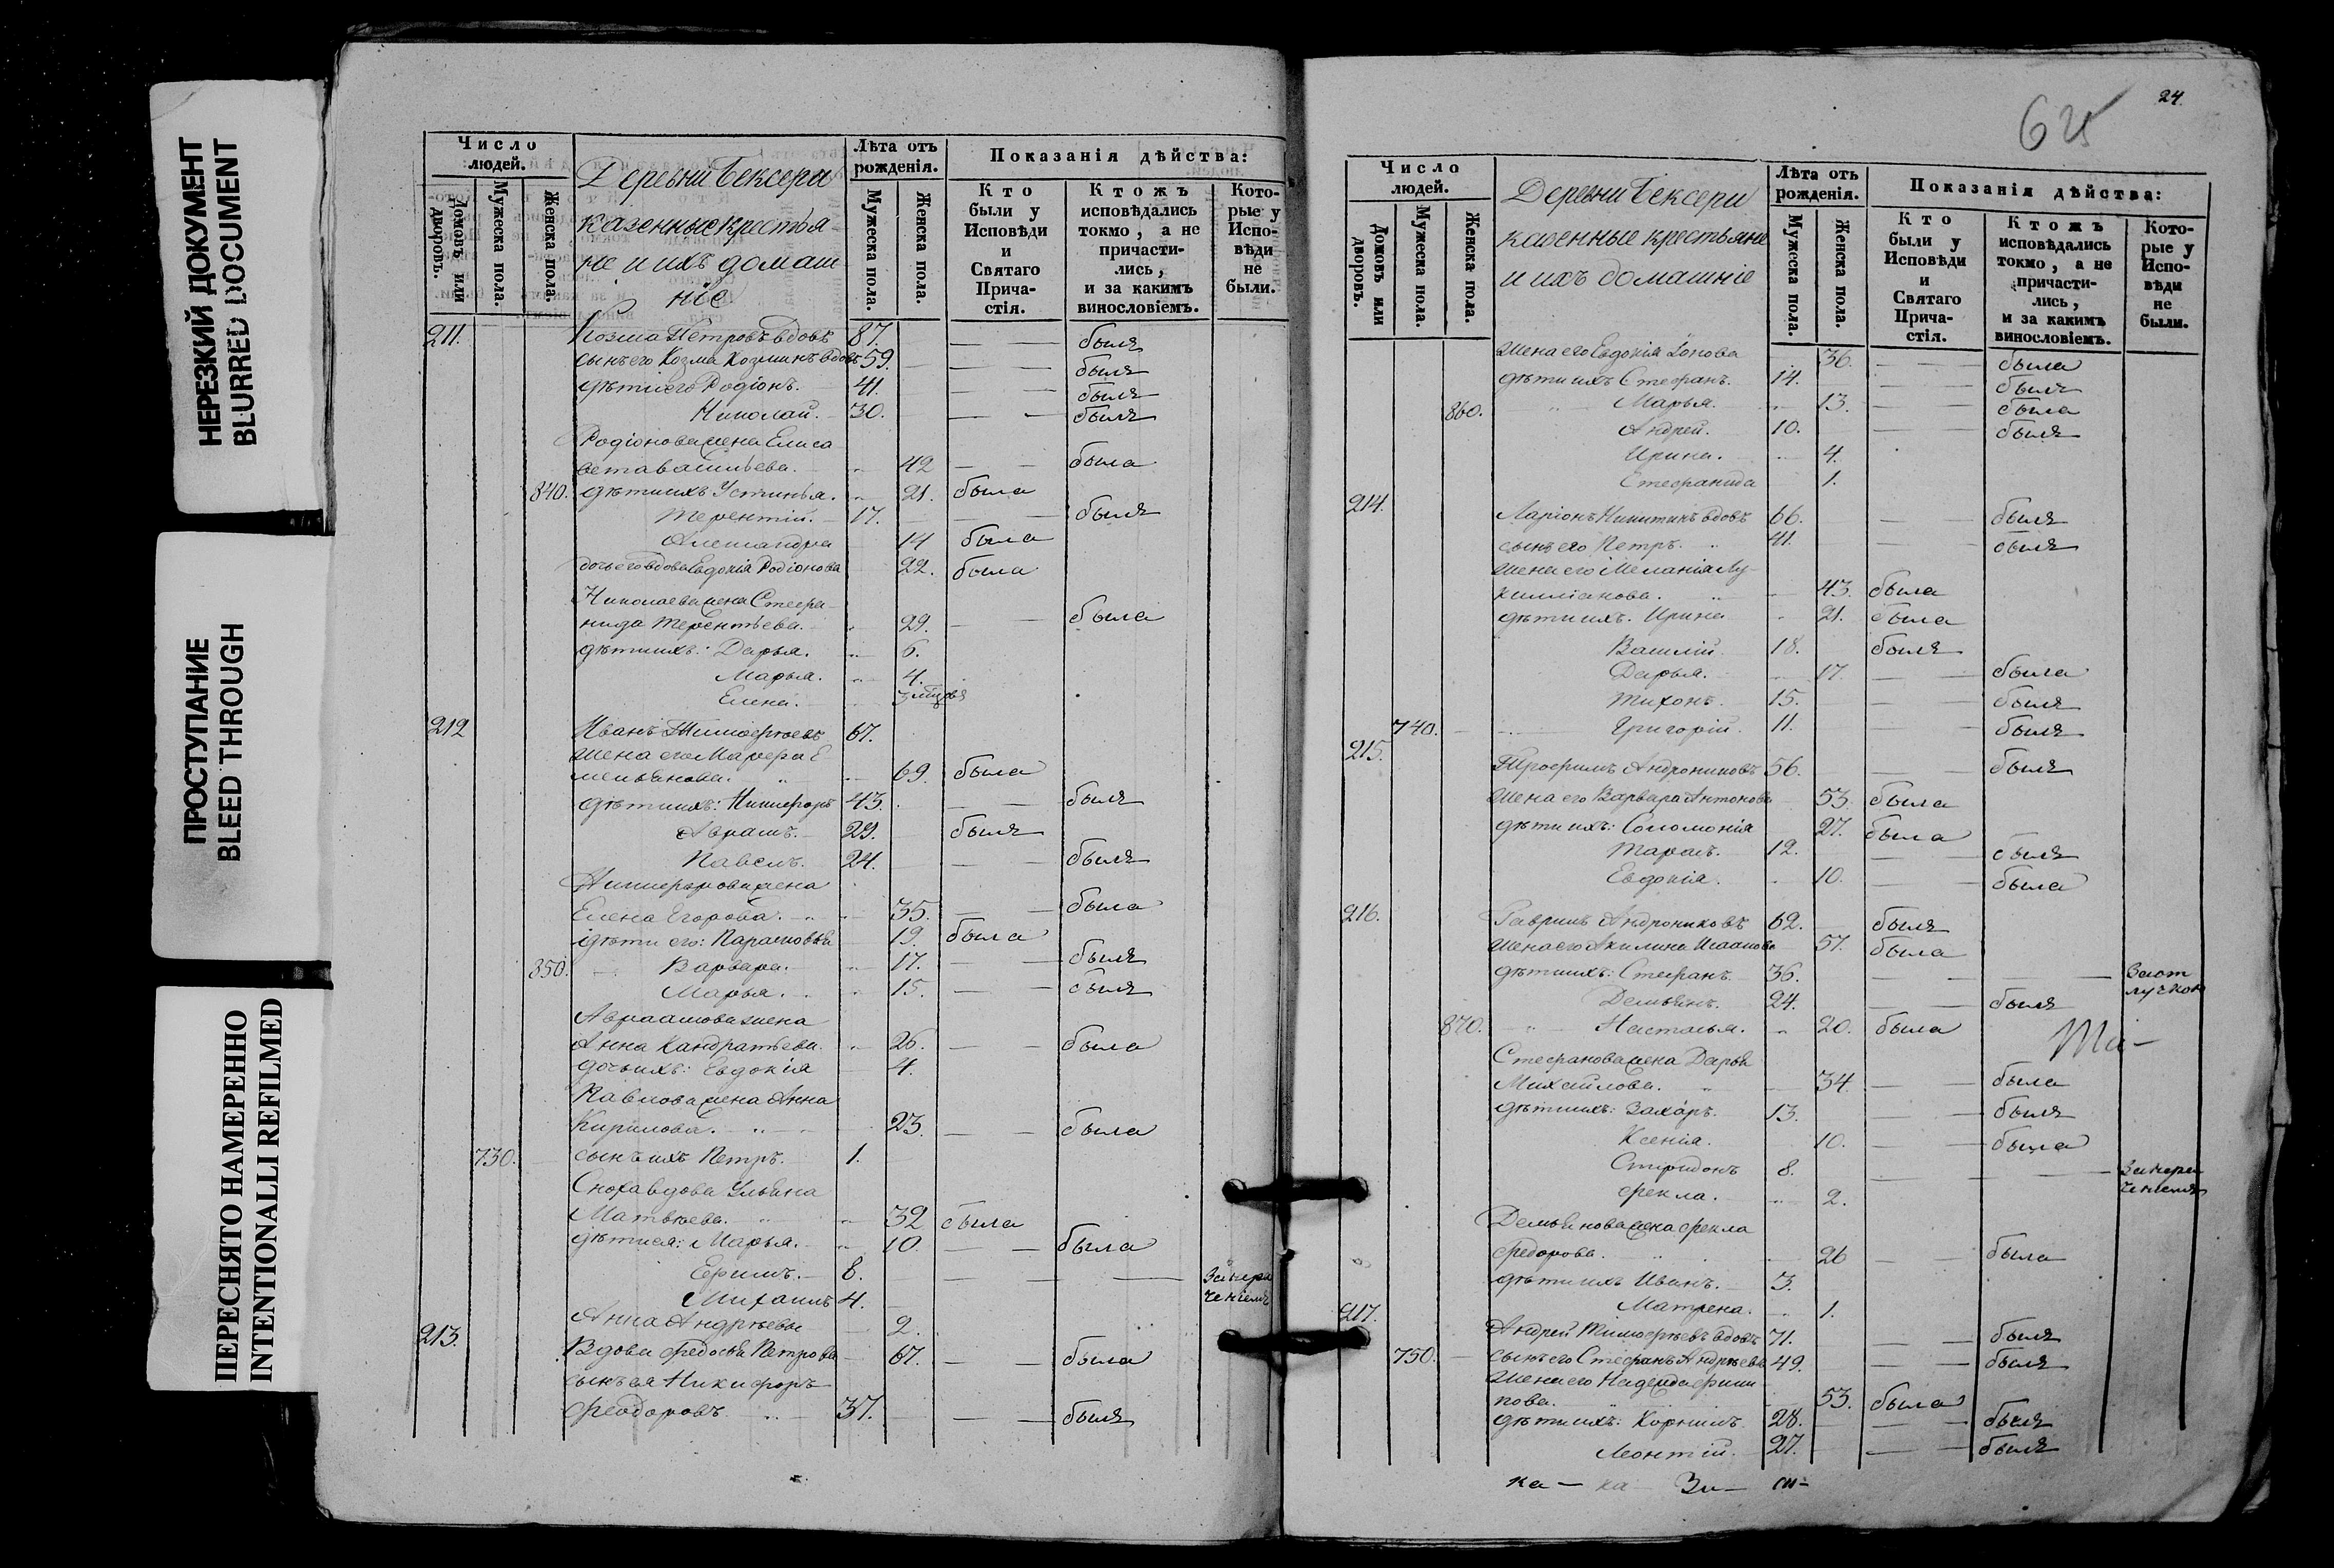 НЕРЕЗКИЙ ДОКУМЕНТ
BLURRED DOCUMENT
ПРОСТУПАНИЕ
BLEED THROUGH
ПЕРЕСНЯТО НАМЕРЕННО
INTENTIONALLI REFILMED
Число людей.
Домовъ или дворовъ.
Мужеска пола.
Женска пола.
Деревни Бексери
казенные крестья-
не и ихъ домаш-
ніе
Лѣта отъ рожденія.
Мужеска пола.
Женска пола.
Показанія дѣйства:
Кто были у Исповѣди и Святаго Прича-стія.
Ктожъ исповѣдались токмо, а не причасти-лись, и за какимъ винословіемъ.
Кото-рые у Испо-вѣди не были.
211. Козма Петровъ вдовъ 87. — — былъ
сынъ его Козма Козминъ вдовъ 59. — — былъ
дѣти его Родіонъ. 41. — — былъ
Николай. 30. — — былъ
Родіонова жена Елиса
вета Васильева. 42 — — была
840. дѣти ихъ Устинья. 21. была
Терентій. 17. — — былъ
Александра 14 была
дочь его вдова Евдокія Родіонова 22. была
Николаева жена Стефа-
нида Терентьева. 29. — — была
дѣти ихъ: Дарья. 6.
Марья. 4.
Елена. 3 мѣсяца
212 Иванъ Тимофѣевъ 67.
жена его Марфа Е
мельянова. 69. была
дѣти ихъ: Никифоръ 43. — — былъ
Аврамъ. 29. былъ
Павелъ. 24. — — былъ
Никифорова жена
Елена Егорова. 35. — — была
дѣти его: Парасковья 19. была
850. Варвара. 17. — — былъ
Марья. 15. — — былъ
Авраамова жена
Анна Кандратьева. 26. — — была
дочь ихъ: Евдокія 4.
Павлова жена Анна
Кирилова. 23. — — была
730. сынъ ихъ Петръ. 1.
Сноха вдова Ульяна
Матвѣева. 32 была
дѣти ея: Марья. 10. — — была
Ефимъ. 8. — — — За нера
Михаилъ 4. ченіемъ
Анна Андрѣева 2.
213. Вдова Федосья Петрова 67. — — была
сынъ ея Никифоръ
Феодоровъ 37. — — былъ
24
625
Число людей.
Домовъ или дворовъ.
Мужеска пола.
Женска пола.
Деревни Бексери
казенные крестьяне
и ихъ домашніе
Лѣта отъ рожденія.
Мужеска пола.
Женска пола.
Показанія дѣйства:
Кто были у Исповѣди и Святаго Прича-стія.
Ктожъ исповѣдались токмо, а не причасти-лись, и за какимъ винословіемъ.
Кото-рые у Испо-вѣди не были.
жена его Евдокія 36. — — была
дѣти ихъ Стефанъ. 14. — — былъ
860. Марья. 13. — — была
Андрей. 10. — — былъ
Ирина. 4.
Стефанида 1.
214. Ларіонъ Никитинъ вдовъ 66. — — былъ
сынъ его Петръ. 41. — — былъ
жена его Меланія Лу-
килліанова. 43. была
дѣти ихъ. Ирина 21. была
Василій 18. былъ
Дарья. 17. — — была
Тихонъ. 15. — — былъ
740. Григорій. 11. — — былъ
215. Трофимъ Андрониковъ 56. — — былъ
жена его Варвара Антонова 53. была
дѣти ихъ: Соломонія 27. была
Тарасъ. 12. — — былъ
Евдокія. 10. — — была
216. Гаврилъ Андрониковъ 62. былъ
жена его Акилина Исаакова 57. была
дѣти ихъ: Стефанъ. 36. — — — За от
лучкою
Демьянъ. 24. — — былъ
870. Настасья. 20. была
Стефанова жена Дарья
Михайлова. 34 — — была
дѣти ихъ: Захаръ. 13. — — былъ
Ксенія. 10. — — была
Спиридонъ 8. — — — За нера
ченіемъ
Фекла. 2.
Демьянова жена Фекла
Федорова. 26 — — была
дѣти ихъ Иванъ. 3.
Матрена. 1.
217. Андрей Тимофѣевъ вдовъ 71. — — былъ
750. сынъ его Стефанъ Андрѣевъ 49. — — былъ
жена его Надежда Филип
пова. 53. была
дѣти ихъ: Корнилъ 28. — — былъ
Леонтій. 27. — — былъ
ка — ка За — си-